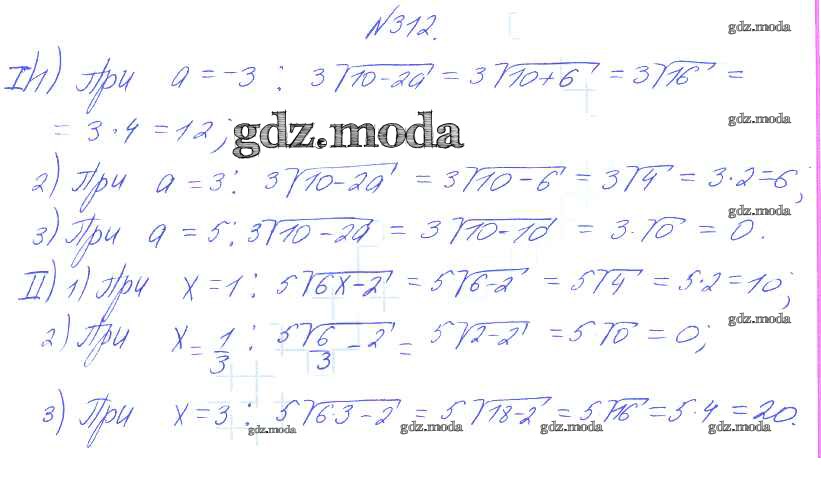 №312. gdz.moda
I) 1) При a = -3 : 3√(10-2a) = 3√(10+6) = 3√16 =
= 3·4 = 12; gdz.moda gdz.moda
2) При a = 3 : 3√(10-2a) = 3√(10-6) = 3√4 = 3·2 = 6;
gdz.moda
3) При a = 5 : 3√(10-2a) = 3√(10-10) = 3·√0 = 0.
II) 1) При x = 1 : 5√(6x-2) = 5√(6-2) = 5√4 = 5·2 = 10;
gdz.moda
2) При x = 1/3 : 5√(6/3 - 2) = 5√(2-2) = 5√0 = 0;
3) При x = 3 : 5√(6·3-2) = 5√(18-2) = 5√16 = 5·4 = 20.
gdz.moda gdz.moda gdz.moda gdz.moda